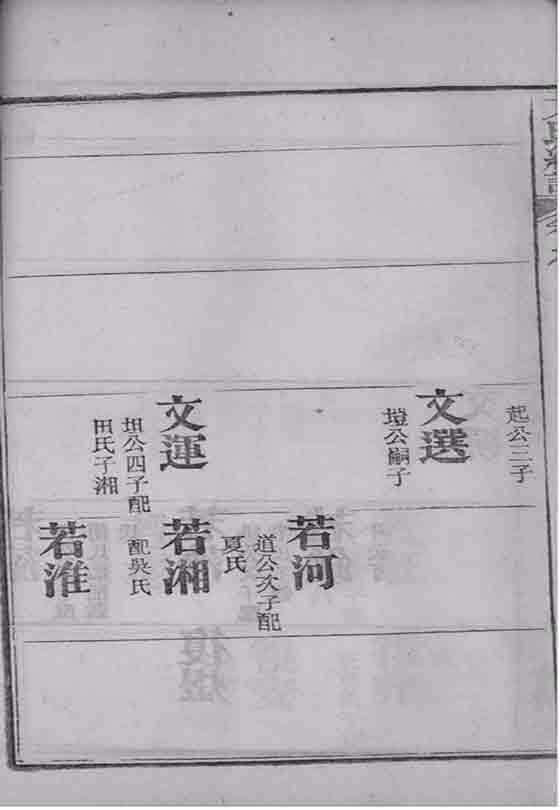 起公三子
文選
塏公嗣子
文運
坦公四子配
田氏子湘
若河
道公次子配
夏氏
若湘
配吳氏
若淮